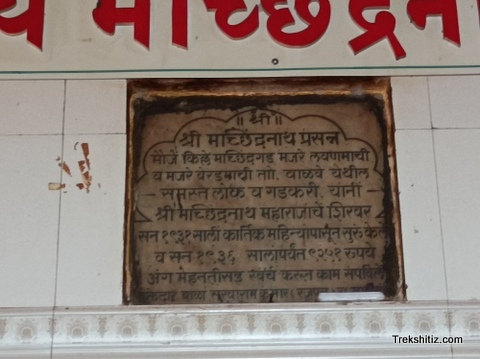 य मच्छिंद्रना
॥ श्री ॥
श्री मच्छिंद्रनाथ प्रसन्न
मौजे किल्ले मच्छिंद्रगड मजरे लवणमाची
व मजरे बेरडमाची ता॥ वाळवे येथील
समस्त लोक व गडकरी यांनी
श्री मच्छिंद्रनाथ महाराजांचें शिखर
सन १९३१ सालीं कार्तिक महिन्यापासून सुरुं केलें
व सन १९३६ सालापर्यंत ९२५१ रुपये
अंग मेहनतीसह खर्च करून काम संपविलें
Trekshitiz.com